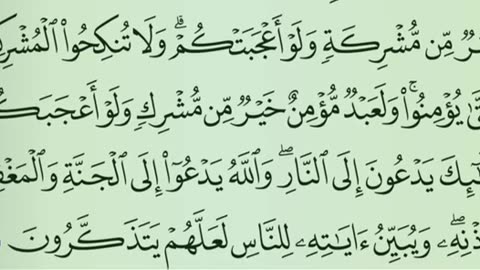 خَيْرٌ مِّن مُّشْرِكَةٍ وَلَوْ أَعْجَبَتْكُمْ ۗ وَلَا تُنكِحُوا۟ ٱلْمُشْرِكِ
حَتَّىٰ يُؤْمِنُوا۟ ۚ وَلَعَبْدٌ مُّؤْمِنٌ خَيْرٌ مِّن مُّشْرِكٍ وَلَوْ أَعْجَبَكُ
أُو۟لَـٰٓئِكَ يَدْعُونَ إِلَى ٱلنَّارِ ۖ وَٱللَّهُ يَدْعُوٓا۟ إِلَى ٱلْجَنَّةِ وَٱلْمَغْفِ
بِإِذْنِهِۦ ۖ وَيُبَيِّنُ ءَايَـٰتِهِۦ لِلنَّاسِ لَعَلَّهُمْ يَتَذَكَّرُونَ